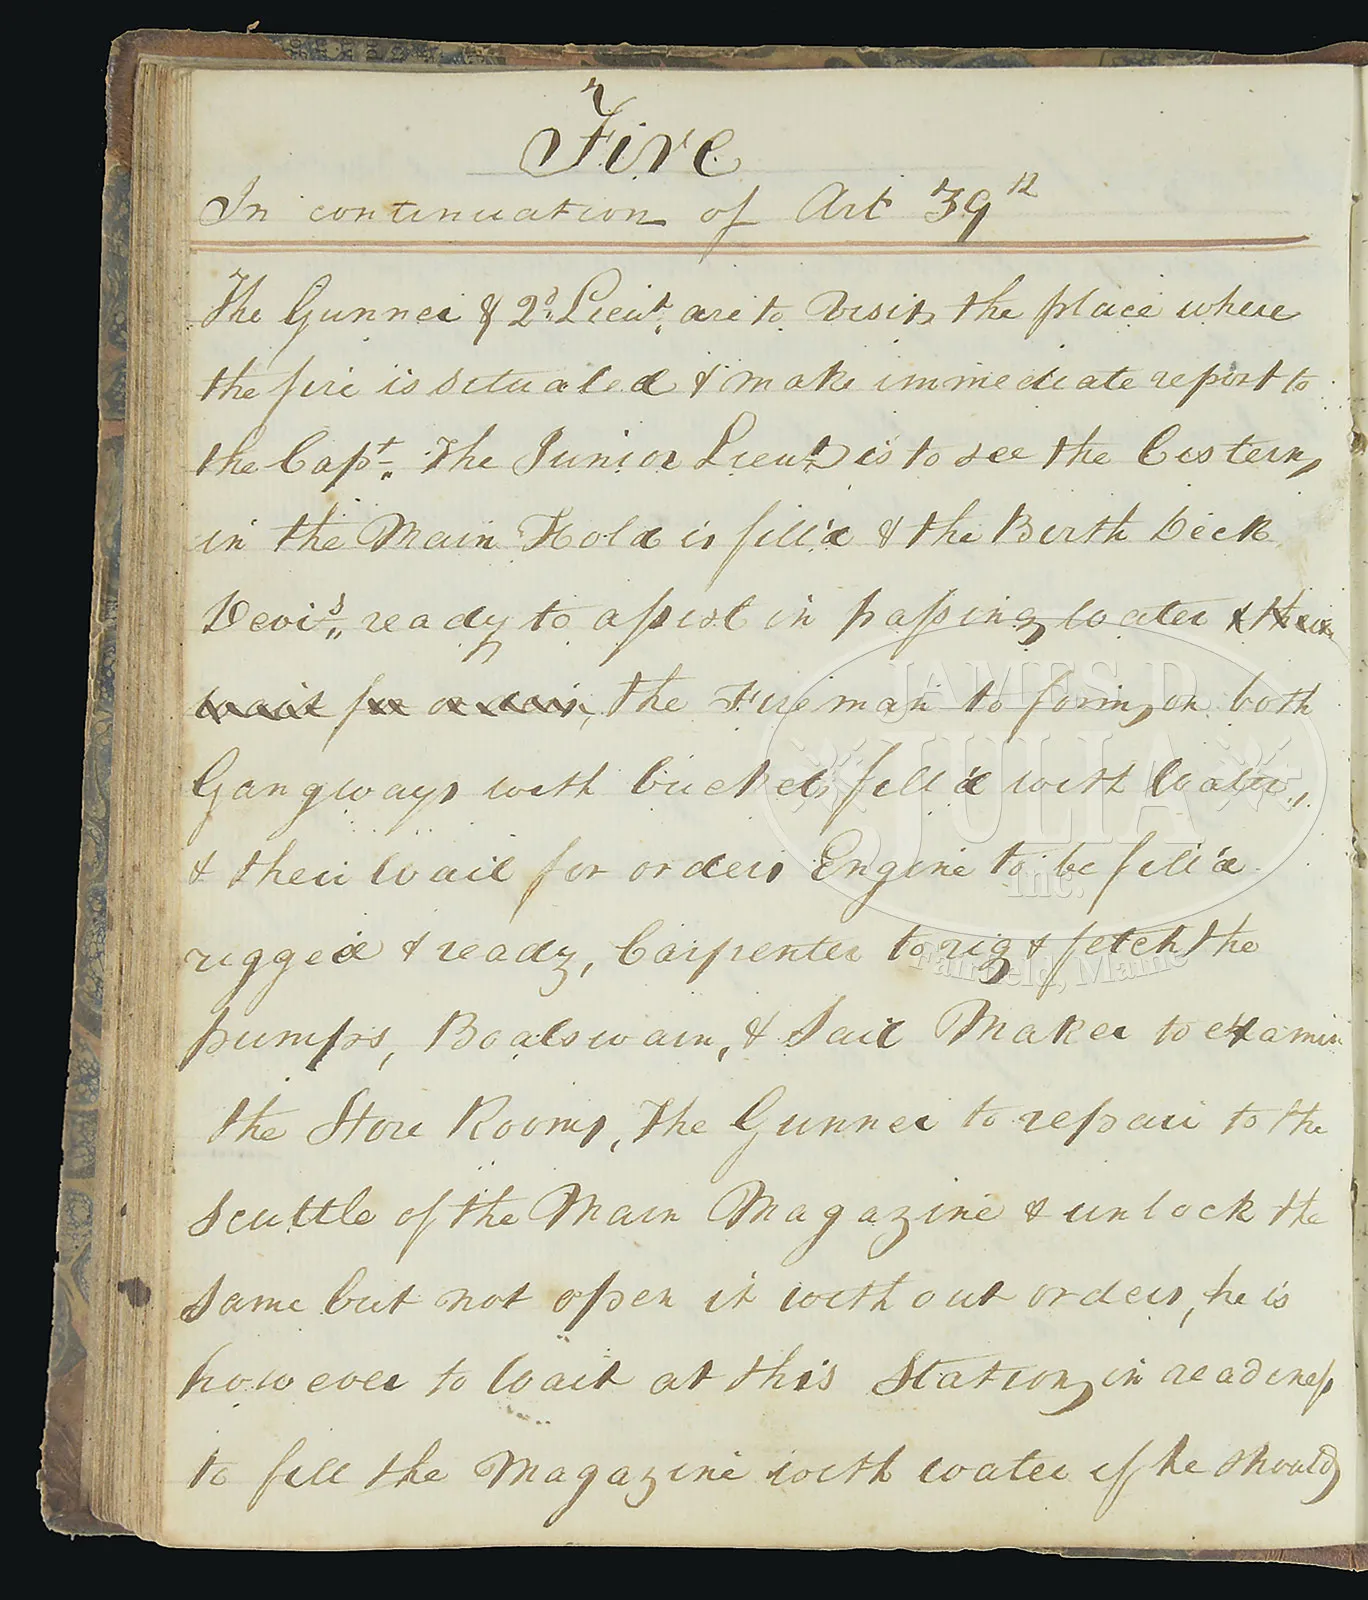 Fire
In continuation of Art 39th
The Gunner & 2d. Lieut. are to visit the place where
the fire is situated & make immediate report to
the Capt. The Junior Lieut. is to see the Cistern,
in the Main Hold is fill'd & the Birth Deck
ready to assist in passing water & then
wait for orders, the Firemen to form, on both
Gangways with buckets fill'd with water,
& their wait for orders Engine to be fill'd
rigged & ready, Carpenter to rig & fetch the
pumps, Boatswain, & Sail Maker to examin
the Store Rooms, The Gunner to repair to the
Scuttle of the Main Magazine & unlock the
same but not open it with out orders, he is
however to wait at this Station, in readiness
to fill the Magazine with water if he should
JAMES D.
JULIA
Inc.
Fairfield, Maine